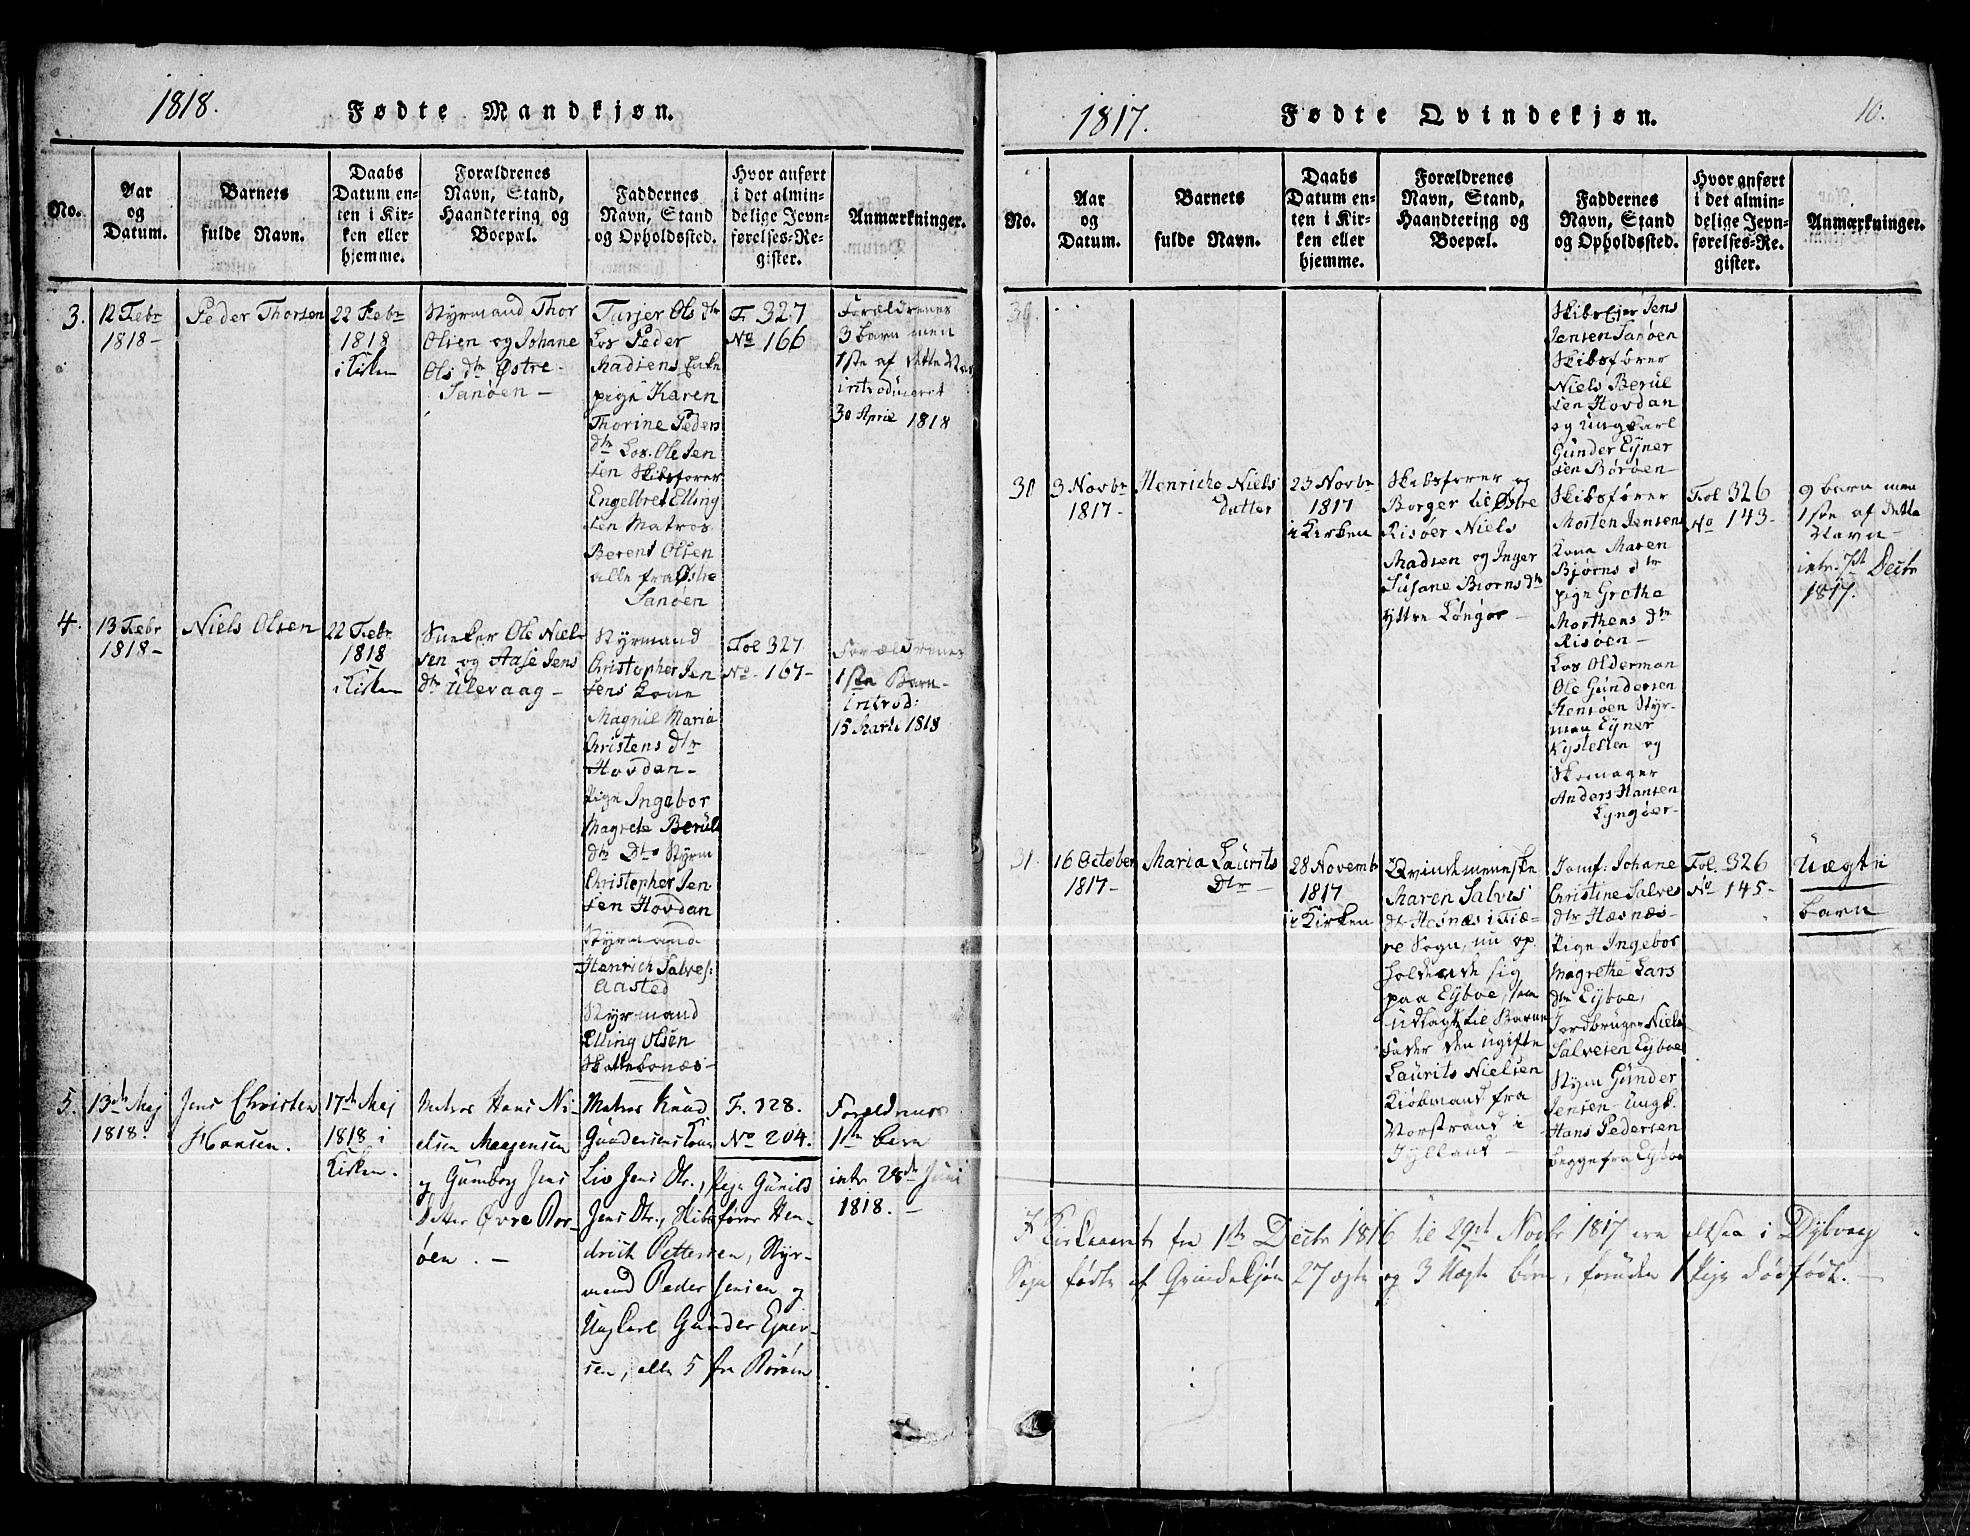 1818.
Fødte Mandkjøn.
No.
Aar
og
Datum.
Barnets
fulde Navn.
Daabs
Datum en-
ten i Kir-
ken eller
hjemme.
Forældrenes
Navn, Stand,
Haandtering og
Boepæl.
Faddernes
Navn, Stand
og Opholdssted.
Hvor anført
i det almin-
delige Jevn-
førelses-Re-
gister.
Anmærkninger.
3.
12 Febr
1818-
Peder Thorsen
22 Febr
1818
i Kirken
Styrmand Thor
Olsen og Johane
Ols dtr Østre
Sanøen-
Turjer Ols dtr
Los Peder
Madsens Enke
pige Karen
Thorine Peders
dtr Los. Ole Jen
sen Skibsfører
Engelbret Elling
sen Matros
Berent Olsen
alle fra Østre
Sanøen
F. 327
No 166
Forældrenes
3 barn men
1ste af dette Navn
introduceret
30 April 1818
4.
13 Febr
1818-
Niels Olsen
22 Febr
1818
i Kirken
Ole Niel
sen og Aase Jens
dtr Ulevaag-
Styrmand
Christopher Jen
sens Kone
Magnil Maria
Christens dtr
Hovdan-
Pige Ingebor
Magrete Berüls
dtr Dto Styrm
Christopher Jen
sen Hovdan
Styrmand
Henrich Salves:
Aasted
Styrmand
Elling Olsen
Fol 327
No. 167-
Forældrenes
1ste Barn-
Introd:
15 Marti 1818
5.
13de Maj
1818.
Jens Christen
Hansen.
17de Maj
1818 i
Kirken.
Matros Hans Ni-
elsen Magensen
og Gunborg Jens
Datter Øvre Bor-
øen. -
Matros Knud
Gundersens Kone
Liv Jens Dtr., Pige Gunild
Jens Dtr., Skibsfører Hen-
drich Pettersen, Styr-
mand Peder Jensen og
Ungkarl Gunder Ejner-
sen, alle 5 fra Borøen
F. 328.
No 204.
Forældrenes
1ste barn
intr 28de Juni
1818. -
1817.
Fødte Qvindekjøn.
10.
No.
Aar
og
Datum.
Barnets
fulde Navn.
Daabs
Datum en-
ten i Kir-
ken eller
hjemme.
Forældrenes
Navn, Stand,
Haandtering og
Boepæl.
Faddernes
Navn, Stand
og Opholdssted.
Hvor anført
i det almin-
delige Jevn-
førelses-Re-
gister.
Anmærkninger.
Skibs Ejer Jens
Jensen Sanøen
Skibsfører
Niels Berül
sen Hovdan
og Ungkarl
Gunder Eyner
sen Borøen-
30
3 Novbr
1817-
Henriche Niels
datter
23 Novbr
1817
i Kirken
Skibsfører og
Borger til Østre
Risøer Niels
Madsen og Inger
Susane Biorns dtr
Yttre Løngør-
Skibsfører
Morten Jensens
Kone Maren
Bjørns dtr
pige Grethe
Morthens dtr
Risøen-
Los Olderman
Ole Gundersen
Stensøen Styr-
man Eyner
og
Skomager
Anders Hansen
Lyngøer-
Fol 326
No 143-
9 barn men
1ste af dette
Navn-
intr. 7st Decbr
1817.
31.
16 October
1817-
Maria Laurits
Dtr -
28 Novemb
1817
i Kirken
Qvindemenneske
Maren Salves
dtr Hesnæs i Fiæ-
re Sogn, nu op
holdende sig
paa Eyboe, som
udlagt til Barne
fader den ugifte
Laurits Nielsen
Kiøbmand fra
Norstrand i
Jylland -
Jomf: Johane
Christine Salves
dtr Hæsnæs-
Pige Ingebor
Magrethe Lars
dtr Eyboe,
Jordbruger Niels
Salvesen Eyboe
Styrm Gunder
Jensen- Ungk.
Hans Pedersen
begge fra Eyboe
Fol. 326
No 145-
Uægte
barn
I Kirkeaaret fra 1ste Decbr 1816 til 29st Novbr 1817 ere altsaa i Dybvaag
Sogn fødte af Qvindekjøn 27 ægte og 3 Uægte børn, foruden 1 Pige dødfødt. -